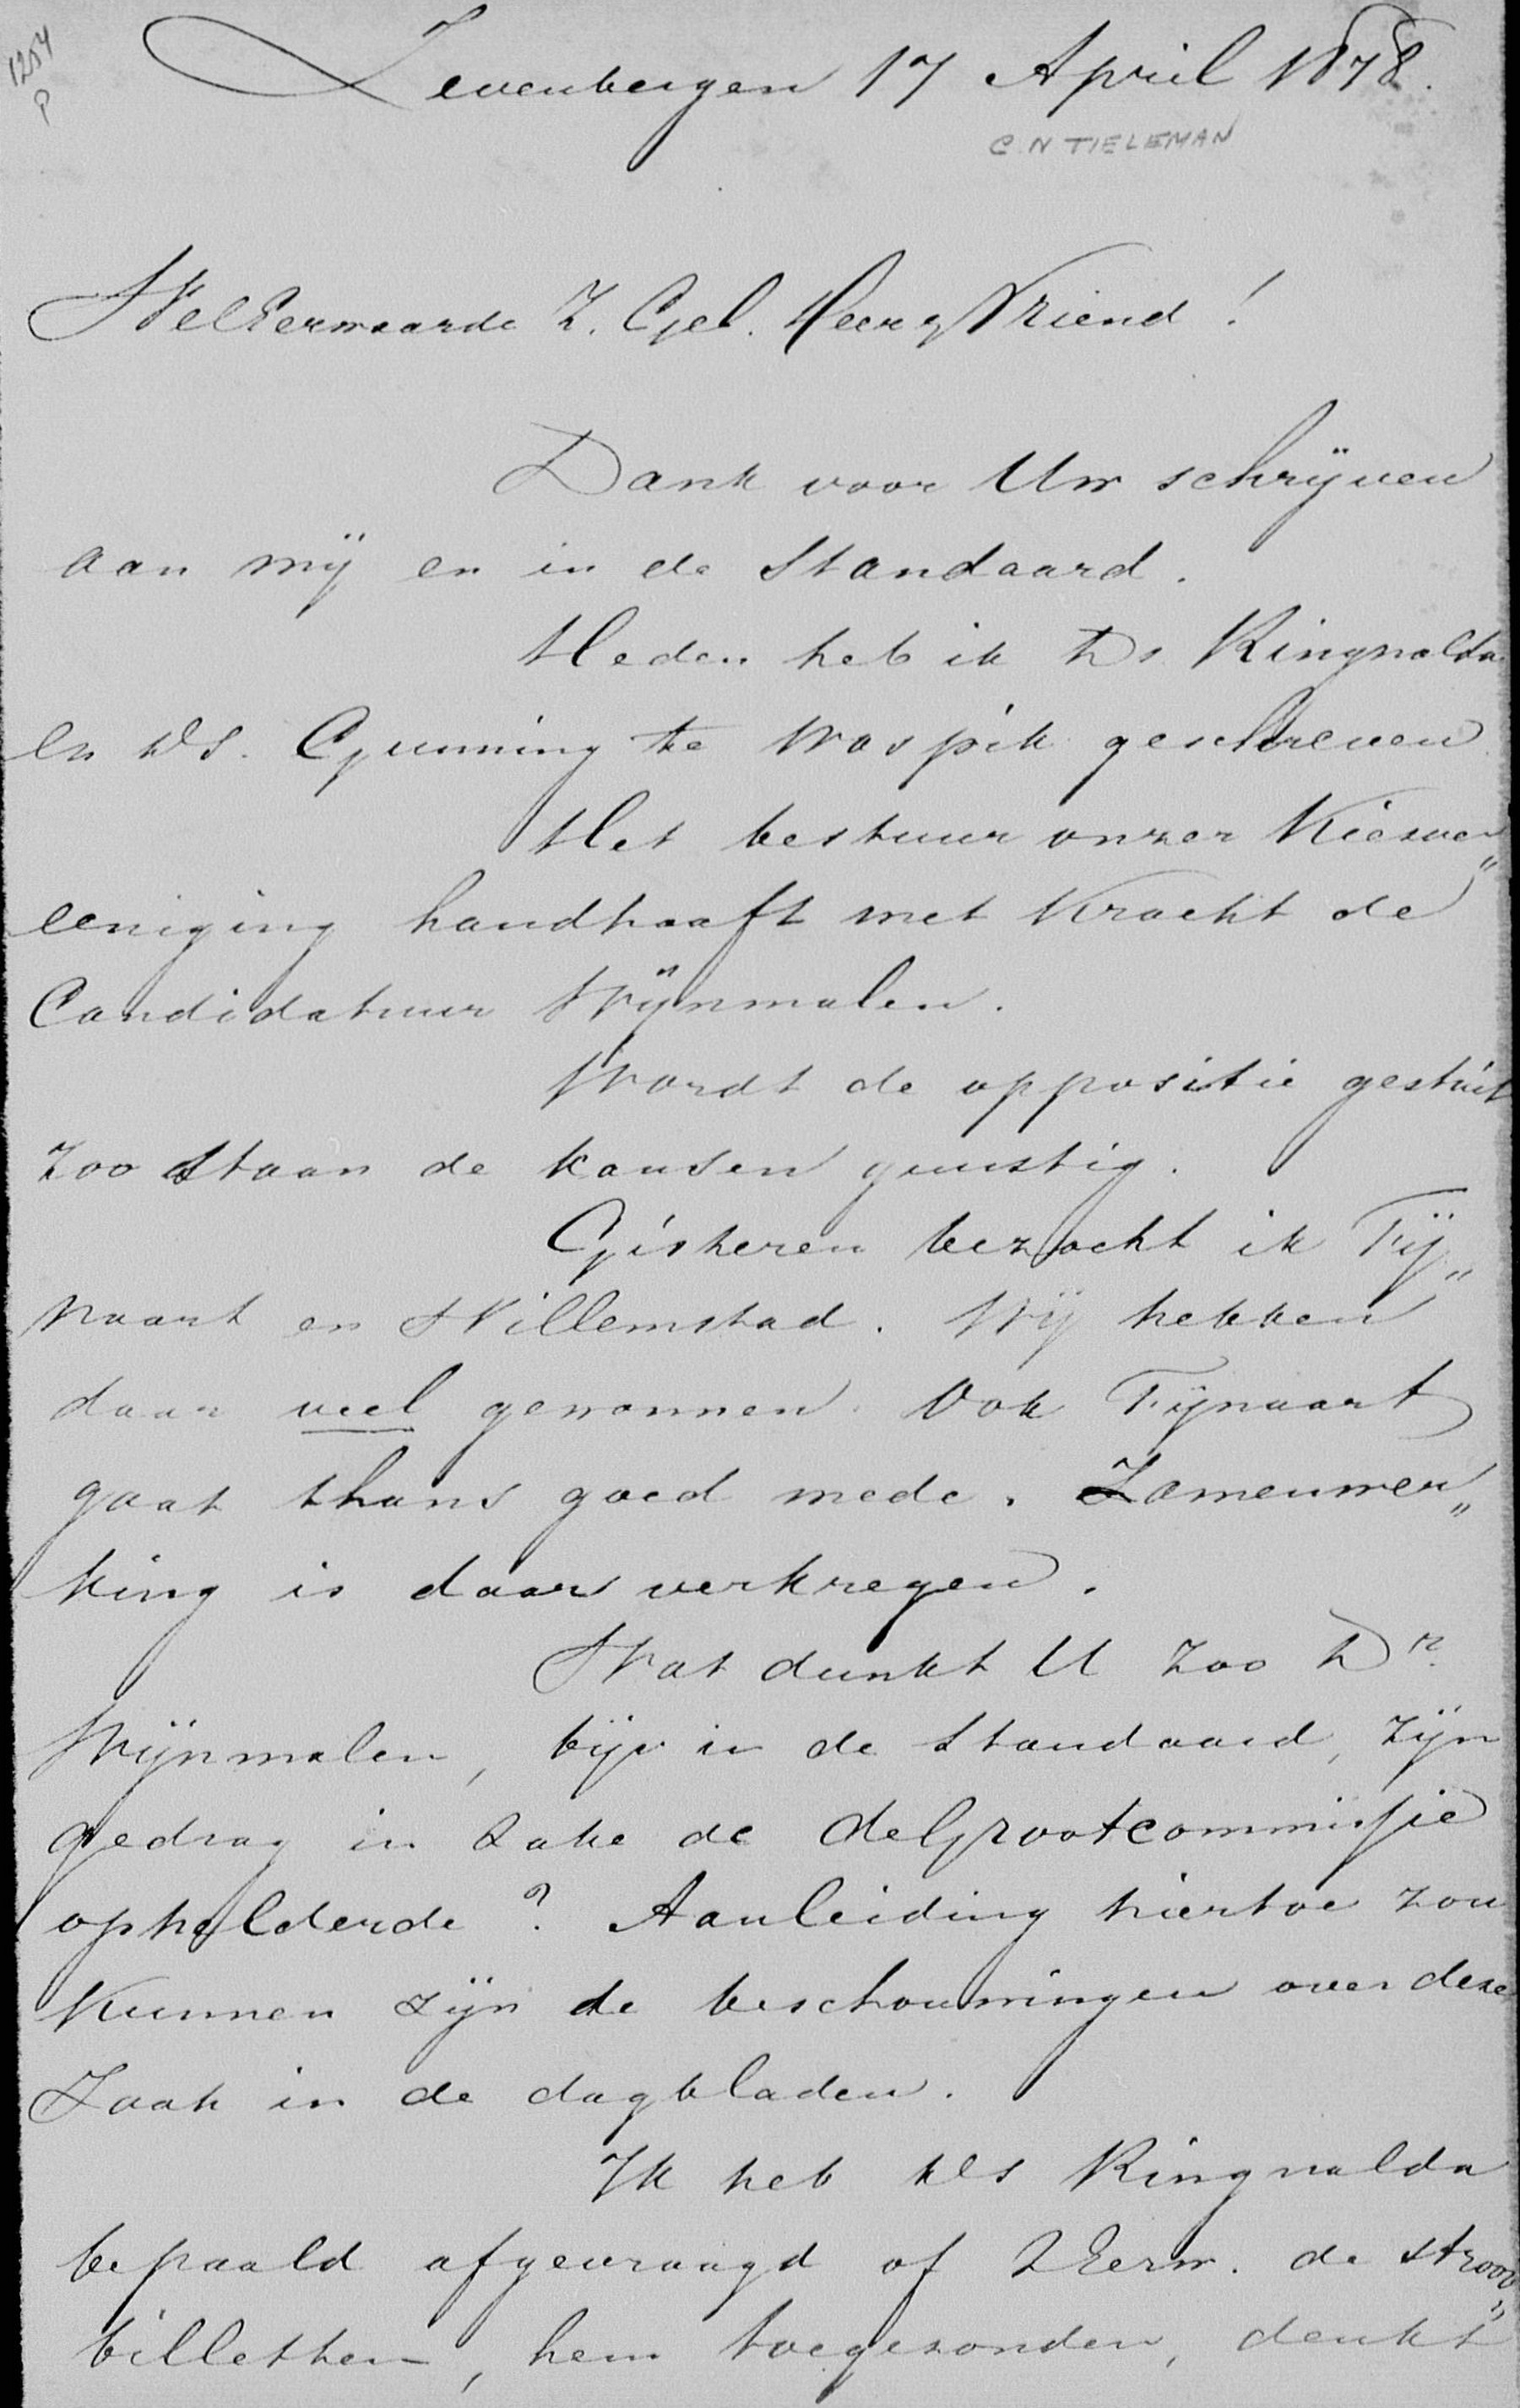 1254
P
Zevenbergen 17 April 1878.
C. N TIELEMAN
WelEerwaarde Z. Gel. Heer & Vriend!
Dank voor Uw schrijven
aan mij en in de Standaard.
Heden heb ik Ds Ringnalda
en Ds. Gunning te Waspik geschreven
Het bestuur onzer Kiesver„
eeniging handhaaft met Kracht de
Candidatuur Wijnmalen.
Wordt de oppositie gestuit
zoo staan de kansen gunstig.
Gisteren bezocht ik Fij„
naart en Willemstad. Wij hebben
daar veel gewonnen. Ook Fijnaart
gaat thans goed mede. Zamenwer„
king is daar verkregen.
Wat dunkt U zoo Dr.
Wijnmalen, bijv in de Standaard, zijn
gedrag in zake de deGrootcommissie
ophelderde? Aanleiding hiertoe zou
Kunnen zijn de beschouwingen over deze
Zaak in de dagbladen.
Ik heb Ds Ringnalda
bepaald afgevraagd of ZEerw. de strooi„
billetten, hem toegezonden, denkt